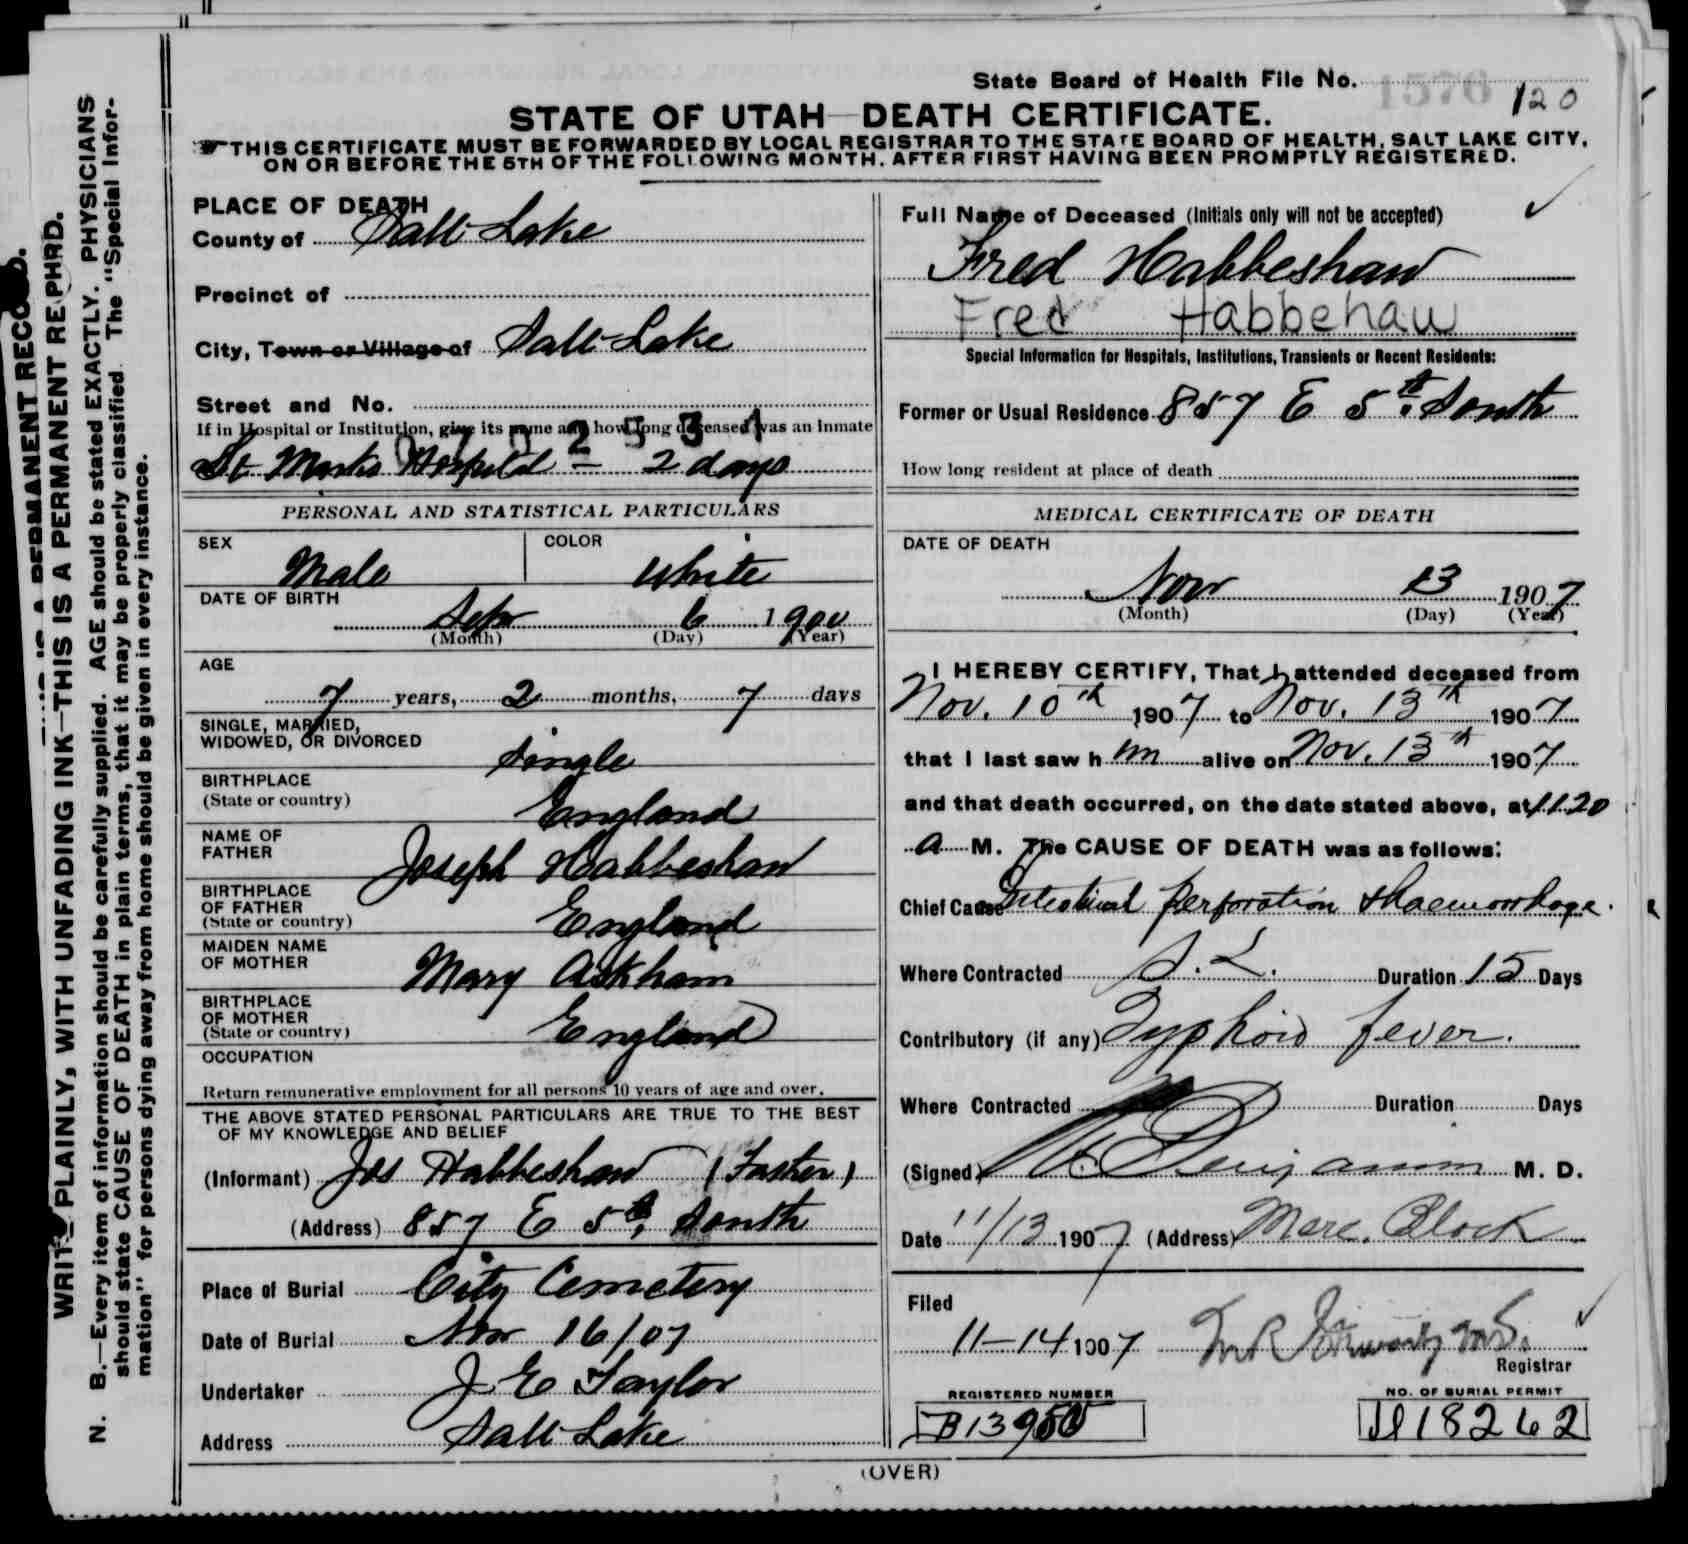 State Board of Health File No. 120
STATE OF UTAH—DEATH CERTIFICATE.
THIS CERTIFICATE MUST BE FORWARDED BY LOCAL REGISTRAR TO THE STATE BOARD OF HEALTH, SALT LAKE CITY,
ON OR BEFORE THE 5TH OF THE FOLLOWING MONTH, AFTER FIRST HAVING BEEN PROMPTLY REGISTERED.
PLACE OF DEATH
County of Salt Lake
Precinct of
City, Town or Village of Salt Lake
Street and No.
If in Hospital or Institution, give its name and how long deceased was an Inmate
St Marks Hospital - 2 days
PERSONAL AND STATISTICAL PARTICULARS
SEX Male
COLOR White
DATE OF BIRTH
Sep 6 1900
(Month) (Day) (Year)
AGE
7 years, 2 months, 7 days
SINGLE, MARRIED,
WIDOWED, OR DIVORCED Single
BIRTHPLACE
(State or country) England
NAME OF
FATHER Joseph Habbeshaw
BIRTHPLACE
OF FATHER
(State or country) England
MAIDEN NAME
OF MOTHER Mary Askham
BIRTHPLACE
OF MOTHER
(State or country) England
OCCUPATION
Return remunerative employment for all persons 10 years of age and over.
THE ABOVE STATED PERSONAL PARTICULARS ARE TRUE TO THE BEST
OF MY KNOWLEDGE AND BELIEF
(Informant) Jos Habbeshaw (Father)
(Address) 857 E 5th South
Place of Burial City Cemetery
Date of Burial Nov 16/07
Undertaker J E Taylor
Address Salt Lake
Full Name of Deceased (Initials only will not be accepted)
Fred Habbeshaw
Fred Habbehaw
Special Information for Hospitals, Institutions, Transients or Recent Residents:
Former or Usual Residence 857 E 5th South
How long resident at place of death
MEDICAL CERTIFICATE OF DEATH
DATE OF DEATH
Nov 13 1907
(Month) (Day) (Year)
I HEREBY CERTIFY, That I attended deceased from
Nov. 10th 1907 to Nov. 13th 1907
that I last saw him alive on Nov. 13th 1907
and that death occurred, on the date stated above, at 11.20
a M. The CAUSE OF DEATH was as follows:
Chief Cause Intestinal perforation & haemorrhage.
Where Contracted S.L. Duration 15 Days
Contributory (if any) Typhoid fever.
Where Contracted Duration Days
(Signed) Benjamin M. D.
Date 11/13 1907 (Address) Merc. Block
Filed
11-14 1907
Registrar
REGISTERED NUMBER
B13950
NO. OF BURIAL PERMIT
18262
(OVER)
N. B.—Every item of information should be carefully supplied. AGE should be stated EXACTLY. PHYSICIANS
should state CAUSE OF DEATH in plain terms, that it may be properly classified. The "Special Infor-
mation" for persons dying away from home should be given in every instance.
PLAINLY, WITH UNFADING INK—THIS IS A PERMANENT